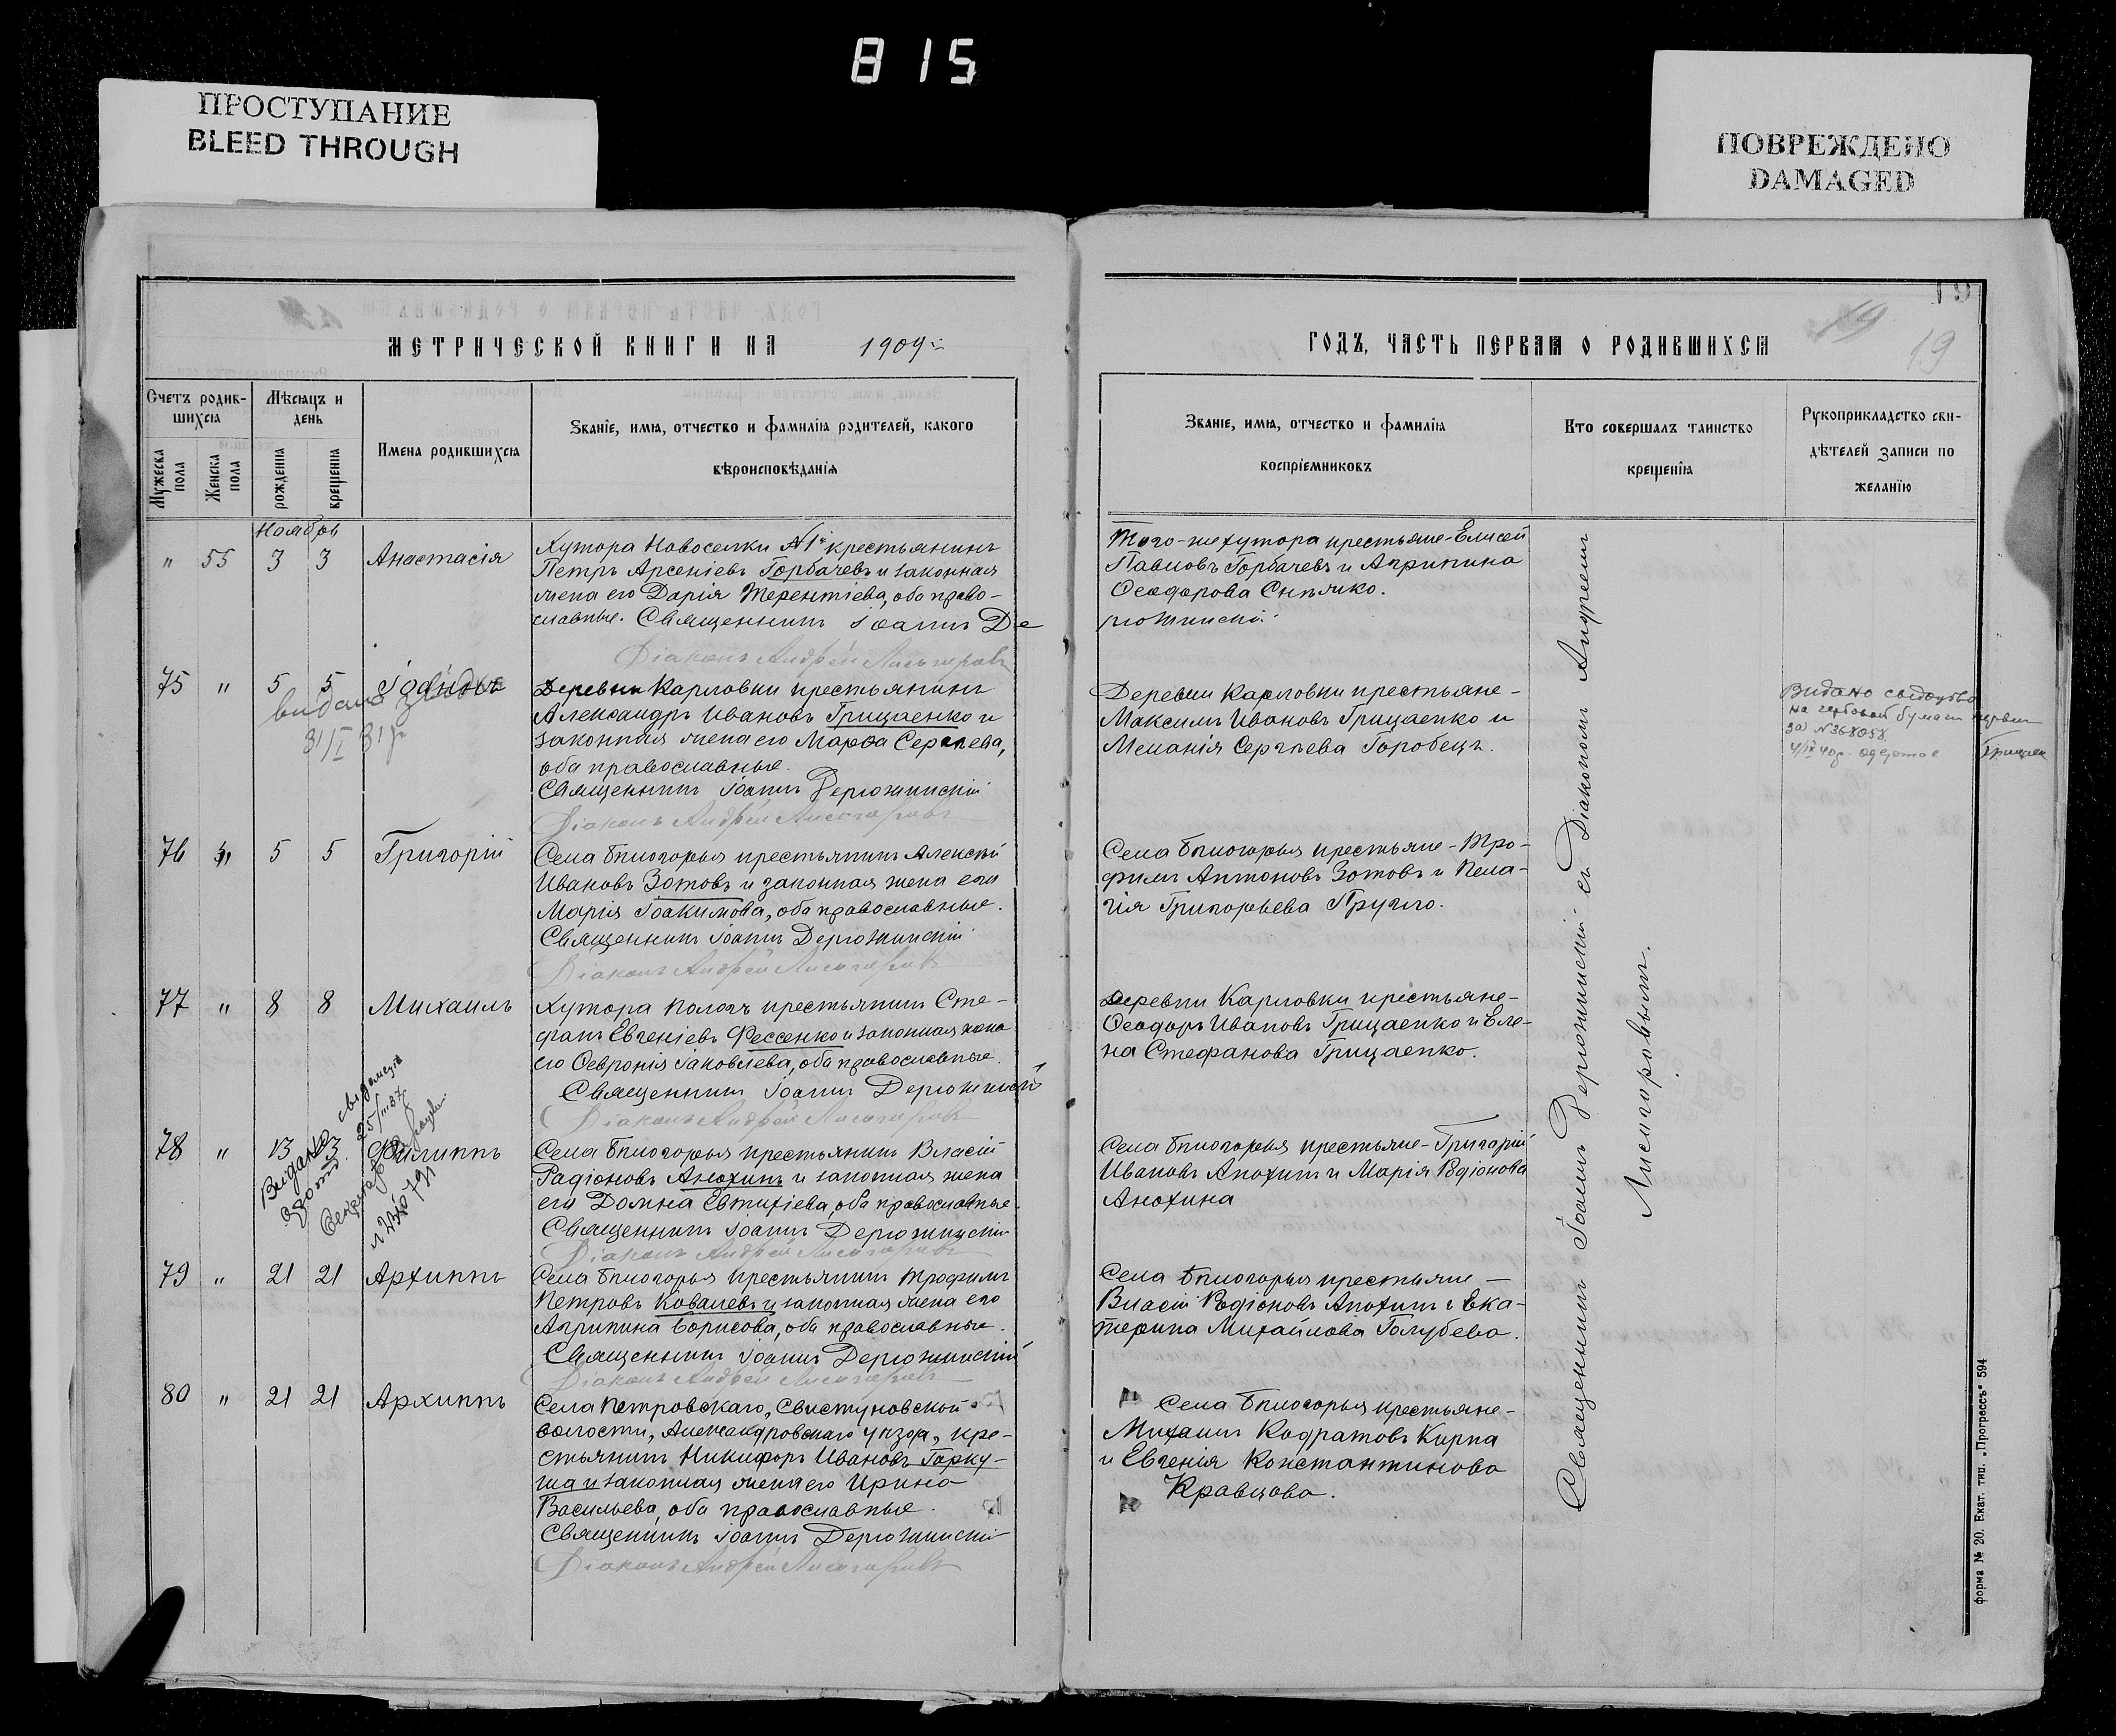 815
ПРОСТУПАНИЕ
BLEED THROUGH
ПОВРЕЖДЕНО
DAMAGED
МЕТРИЧЕСКОЙ КНИГИ НА 1909
Счетъ родив-
шихсѧ
Мужеска пола
Женска пола
Мѣсѧцъ и
день
рожденіѧ
крещеніѧ
Имена родившихсѧ
Званіе, имѧ, отчество и фамиліѧ родителей, какого
вѣроисповѣданіѧ
Ноябрь
" 55 3 3 Анастасія
Хутора Новоселки №1й крестьянинъ
Петръ Арсеніевъ Горбачевъ и законная
жена его Дарія Терентіева, оба право-
славные. Священникъ Іоаннъ Де
Діаконъ Андрей Лисогоровъ
75 " 5 5
видано
31/I 31 р
Деревни Карловки крестьянинъ
Александръ Ивановъ Грицаенко и
законная жена его Марѳа Сергѣева,
оба православные.
Священникъ Іоаннъ Дерюжинскій
Діаконъ Андрей Лисогоровъ
76 " 5 5 Григорій
Села Бѣлогорья крестьянинъ Алексѣй
Ивановъ Зотовъ и законная жена его
Марія Іоакимова, оба православные.
Священникъ Іоаннъ Дерюжинскій
Діаконъ Андрей Лисогоровъ
77 " 8 8 Михаилъ
Хутора Пологъ крестьянинъ Сте-
фанъ Евгеніевъ Фессенко и законная жена
его Ѳевронія Іаковлева, оба православные.
Священникъ Іоаннъ Дерюжинскій
Діаконъ Андрей Лисогоровъ
78 " 13 13 Филиппъ
Видано
25/III 37
Села Бѣлогорья крестьянинъ Власій
Радіоновъ Анохинъ и законная жена
его Домна Евтихіева, оба православные.
Священникъ Іоаннъ Дерюжинскій
Діаконъ Андрей Лисогоровъ
79 " 21 21 Архиппъ
Села Бѣлогорья крестьянинъ Трофимъ
Петровъ Ковалевъ и законная жена его
Агрипина Борисова, оба православные.
Священникъ Іоаннъ Дерюжинскій
Діаконъ Андрей Лисогоровъ
80 " 21 21 Архиппъ
Села Петровскаго, Свистуновской
волости, Александровскаго уѣзда, кре-
стьянинъ Никифоръ Ивановъ Гарку-
ша и законная жена его Ирина
Васильева, оба православные.
Священникъ Іоаннъ Дерюжинскій
Діаконъ Андрей Лисогоровъ
19
19
19
ГОДЪ, ЧАСТЬ ПЕРВАѦ О РОДИВШИХСѦ
Званіе, имѧ, отчество и фамиліѧ
воспріемниковъ
Кто совершалъ таинство
крещеніѧ
Рукоприкладство сви-
дѣтелей записи по
желанію
Того-же хутора крестьяне-Елисей
Павловъ Горбачевъ и Агрипина
Ѳеодорова Снѣжко.
рюжинскій
Деревни Карловки крестьяне-
Максимъ Ивановъ Грицаенко и
Меланія Сергѣева Горобецъ.
Села Бѣлогорья крестьяне-Тро-
фимъ Антоновъ Зотовъ и Пела-
гія Григорьева Пругло.
Деревни Карловки крестьяне-
Ѳеодоръ Ивановъ Грицаенко и Еле-
на Стефанова Грицаенко.
Села Бѣлогорья крестьяне-Григорій
Ивановъ Анохинъ и Марія Родіонова
Анохина
Села Бѣлогорья крестьяне-
Власій Родіоновъ Анохинъ и Ека-
терина Михайлова Голубева.
Села Бѣлогорья крестьяне-
Михаилъ Кодратовъ Кирпа
и Евгенія Константинова
Кравцова.
Священникъ Іоаннъ Дерюжинскій съ Діакономъ Андреемъ
Лисогоровымъ.
Видано свідоцтво
на гербовой бумаге
за №368058
4/IX 40 р.
форма № 20. Екат. тип. „Прогрессъ“ 594